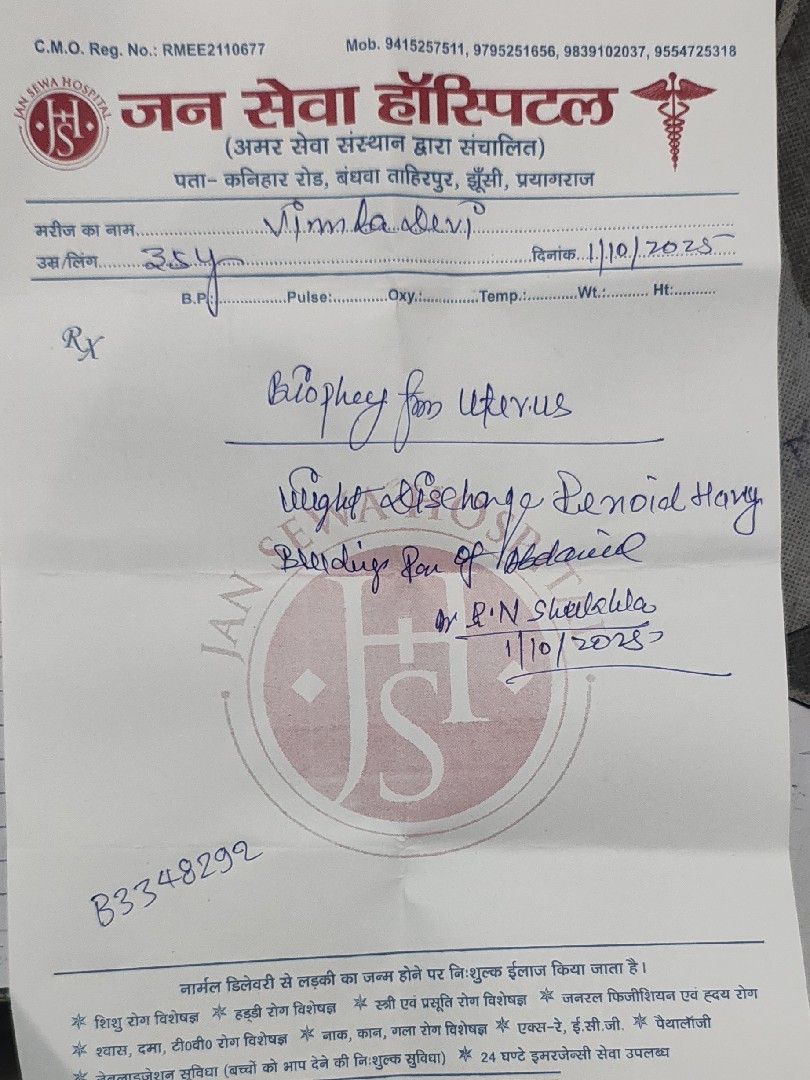 C.M.O. Reg. No.: RMEE2110677
Mob. 9415257511, 9795251656, 9839102037, 9554725318
JAN SEWA HOSPITAL
JHS
जन सेवा हॉस्पिटल
(अमर सेवा संस्थान द्वारा संचालित)
पता– कनिहार रोड, बंधवा ताहिरपुर, झूँसी, प्रयागराज
मरीज का नाम Vimla Devi
उम्र/लिंग 35y दिनांक 1/10/2025
B.P.: Pulse: Oxy.: Temp.: Wt.: Ht:
Rx
Biophey from Uterus
Discharge
Bleeding Pan Of
Dr R.N Shukhla
1/10/2025
JAN SEWA HOSPITAL
JHS
B3348292
नार्मल डिलेवरी से लड़की का जन्म होने पर निःशुल्क ईलाज किया जाता है।
✳ शिशु रोग विशेषज्ञ ✳ हड्डी रोग विशेषज्ञ ✳ स्त्री एवं प्रसूति रोग विशेषज्ञ ✳ जनरल फिजीशियन एवं ह्दय रोग
✳ श्वास, दमा, टी0वी0 रोग विशेषज्ञ ✳ नाक, कान, गला रोग विशेषज्ञ ✳ एक्स-रे, ई.सी.जी. ✳ पैथालॉजी
✳ नेबुलाइजेशन सुविधा (बच्चों को भाप देने की निःशुल्क सुविधा) ✳ 24 घण्टे इमरजेन्सी सेवा उपलब्ध